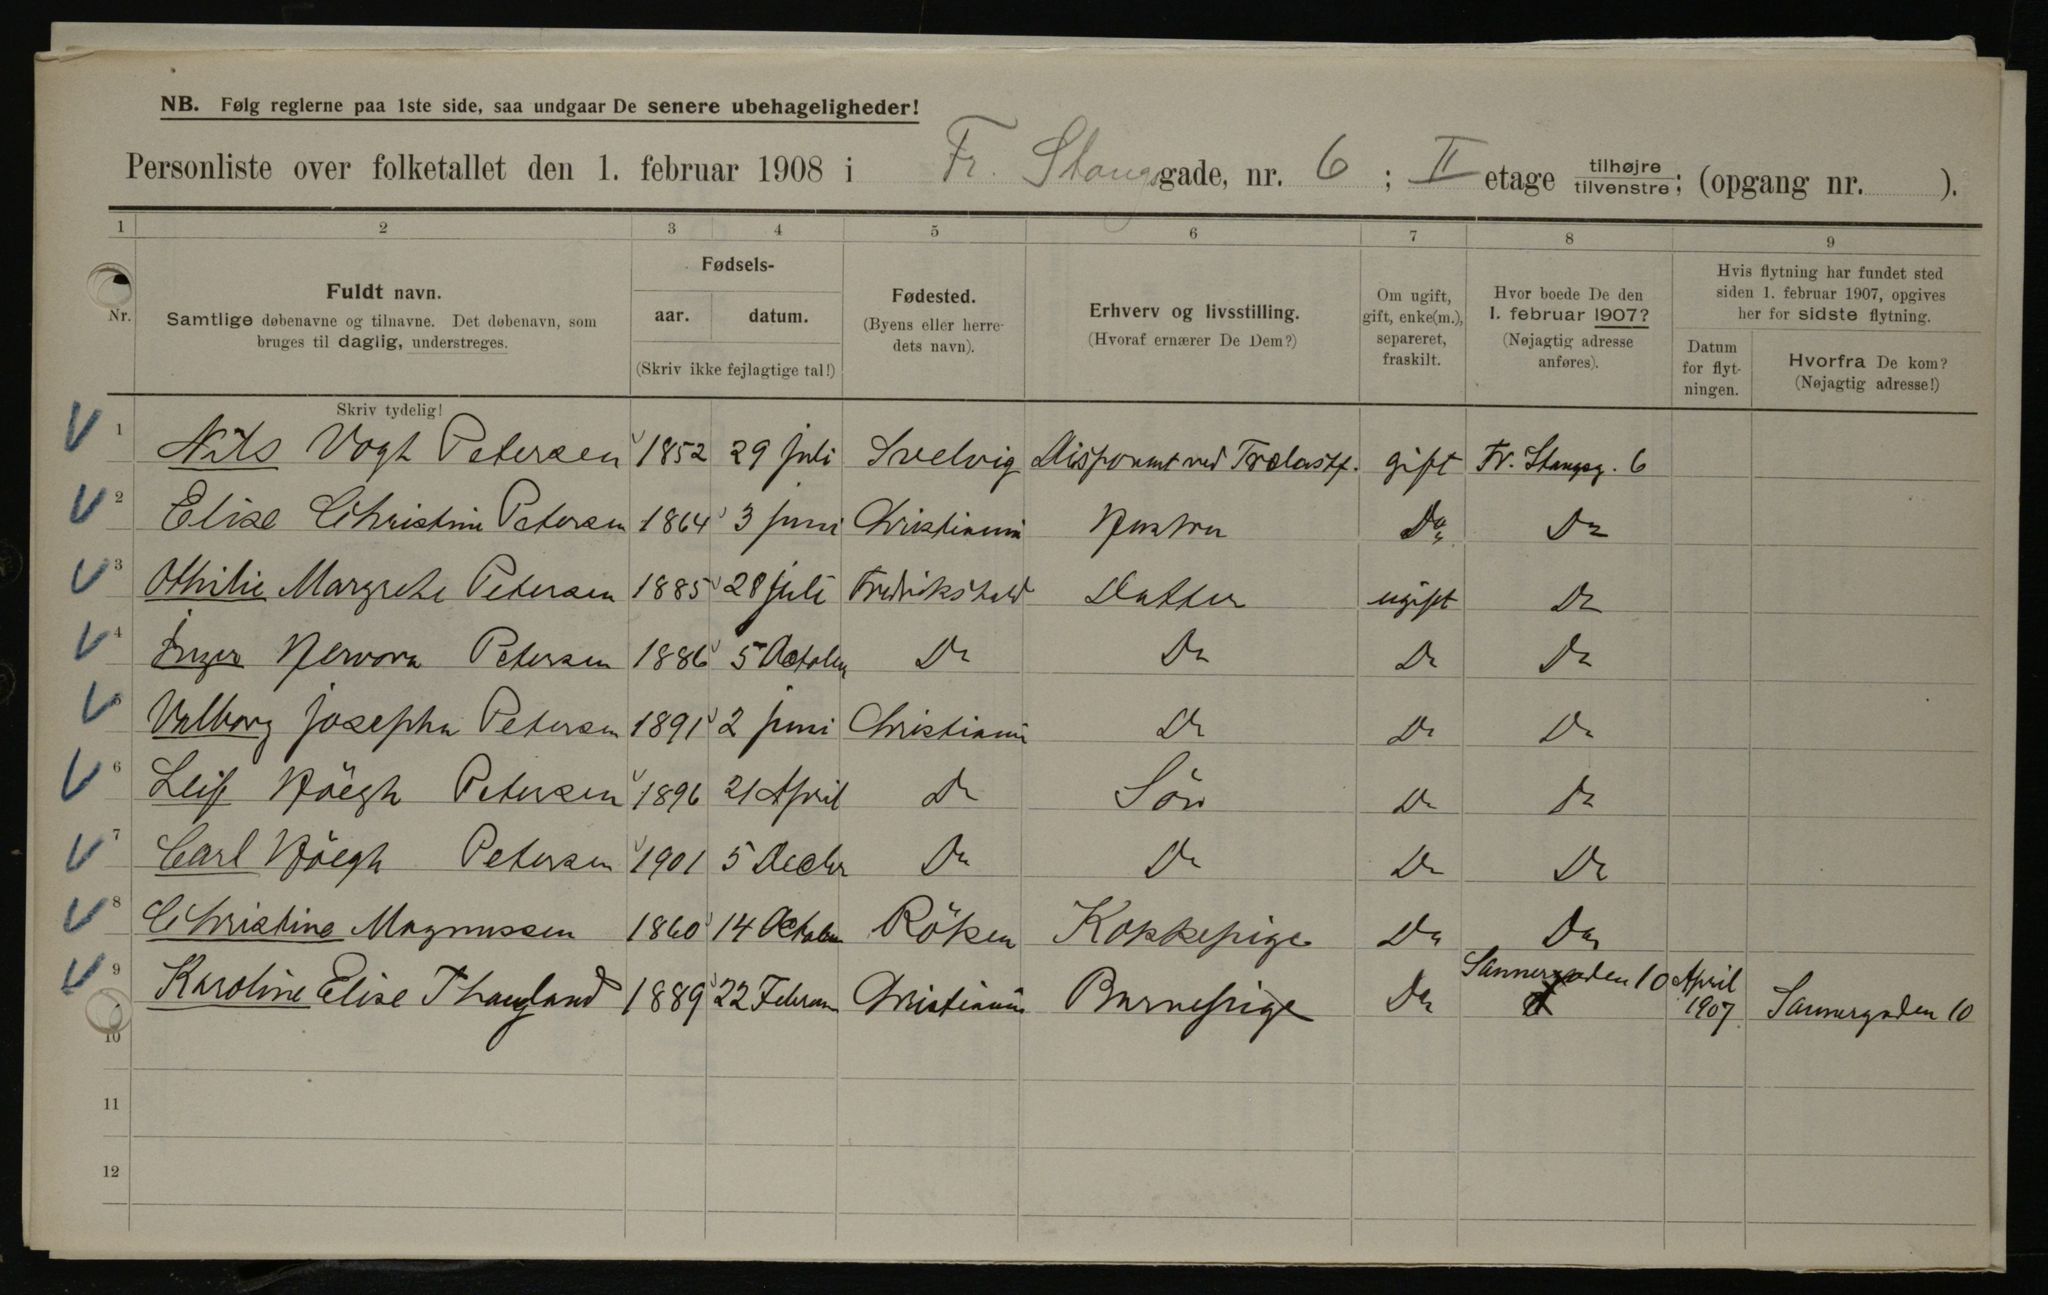 NB. Følg reglerne paa 1ste side, saa undgaar De senere ubehageligheder!
Personliste over folketallet den 1. februar 1908 i Fr. Stangsgade, nr. 6; II etage tilhøjre tilvenstre; (opgang nr. ).
1 2 3 4 5 6 7 8 9
Nr.
Fuldt navn.
Samtlige døbenavne og tilnavne. Det døbenavn, som
bruges til daglig, understreges.
Skriv tydelig!
Fødsels-
aar. datum.
(Skriv ikke fejlagtige tal!)
Fødested.
(Byens eller herre-
dets navn).
Erhverv og livsstilling.
(Hvoraf ernærer De Dem?)
Om ugift,
gift, enke(m.),
separeret,
fraskilt.
Hvor boede De den
1. februar 1907?
(Nøjagtig adresse
anføres).
Hvis flytning har fundet sted
siden 1. februar 1907, opgives
her for sidste flytning.
Datum
for flyt-
ningen.
Hvorfra De kom?
(Nøjagtig adresse!)
1 Nils Vogt Petersen 1852 29 juli Svelvig Disponent ved Trælastf. gift Fr. Stangsg. 6
2 Elise Christine Petersen 1864 3 juni Christiania Hustru Do Do
3 Othilie Margrete Petersen 1885 28 juli Fredrikshald Datter ugift Do
4 Inger Petersen 1886 5 October Do Do Do Do
Valborg Josepha Petersen 1891 2 juni Christiania Do Do Do
6 Leif Höegh Petersen 1896 21 April Do Sön Do Do
7 Carl Höegh Petersen 1901 5 Decbr Do Do Do Do
8 Christine Magnussen 1860 14 October Röken Kokkepige Do Do
9 Karoline Elise Thaugland 1889 22 Februar Christiania Barnepige Do Sannergaden 10 April 1907 Sannergaden 10
10
11
12